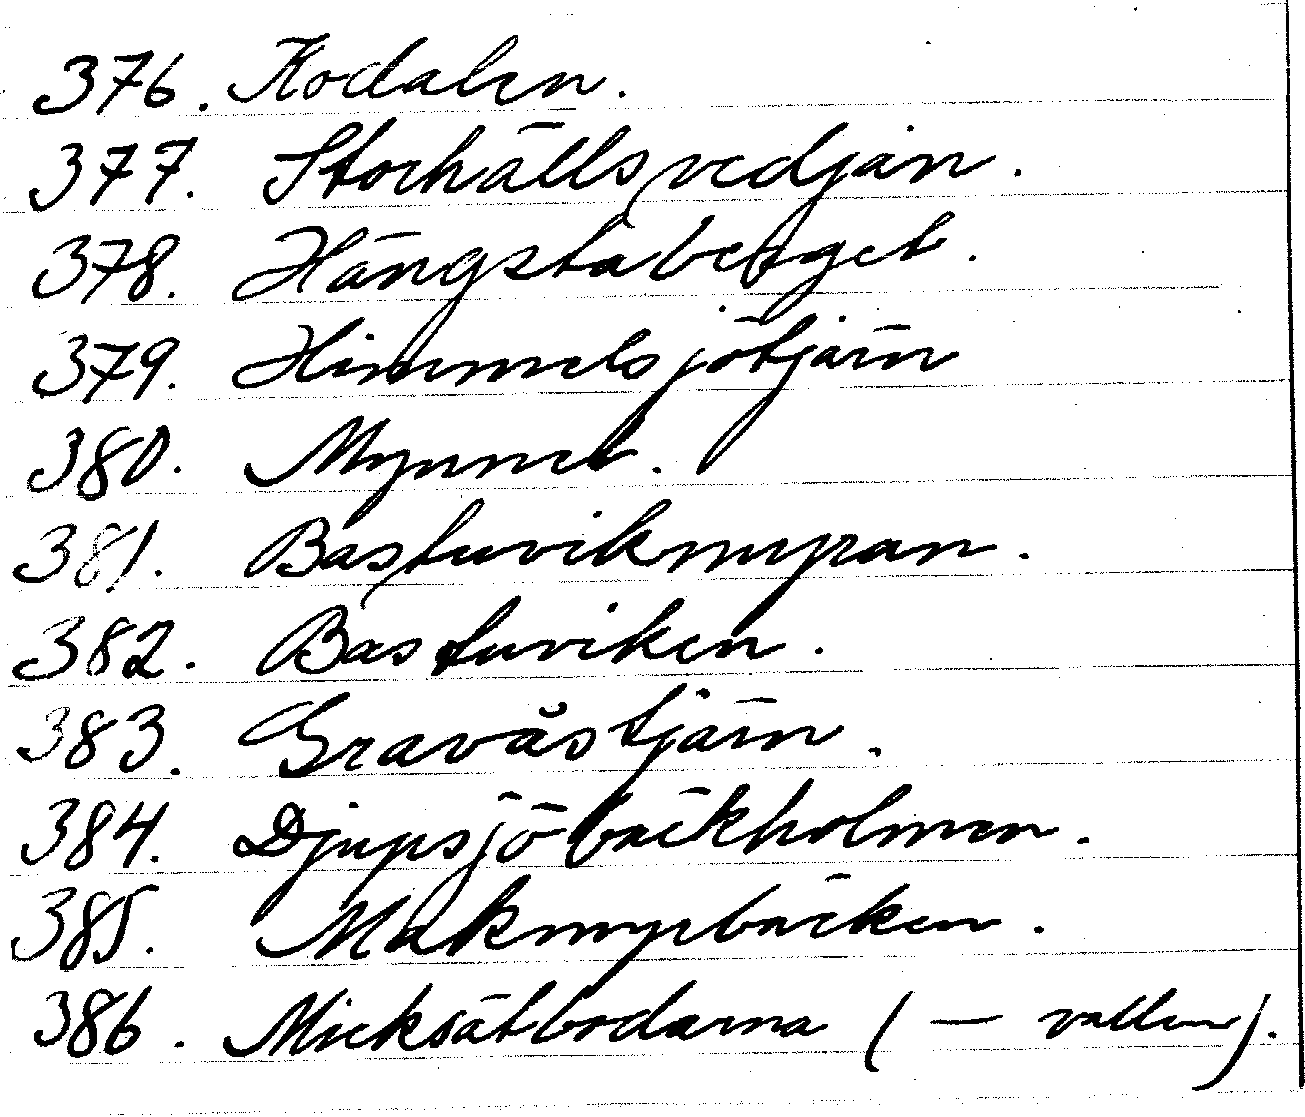 376. Kodalen.
377. Storhällsvedjan.
378. Hängstaberget.
379. Himmelsjötjärn
380. Mynnet.
381. Bastuvikmyran.
382. Bastuviken.
383. Gravåstjärn.
384. Djupsjöbäckholmen.
385. Mukmyrbäcken.
386. Micksätbodarna (— vallen).